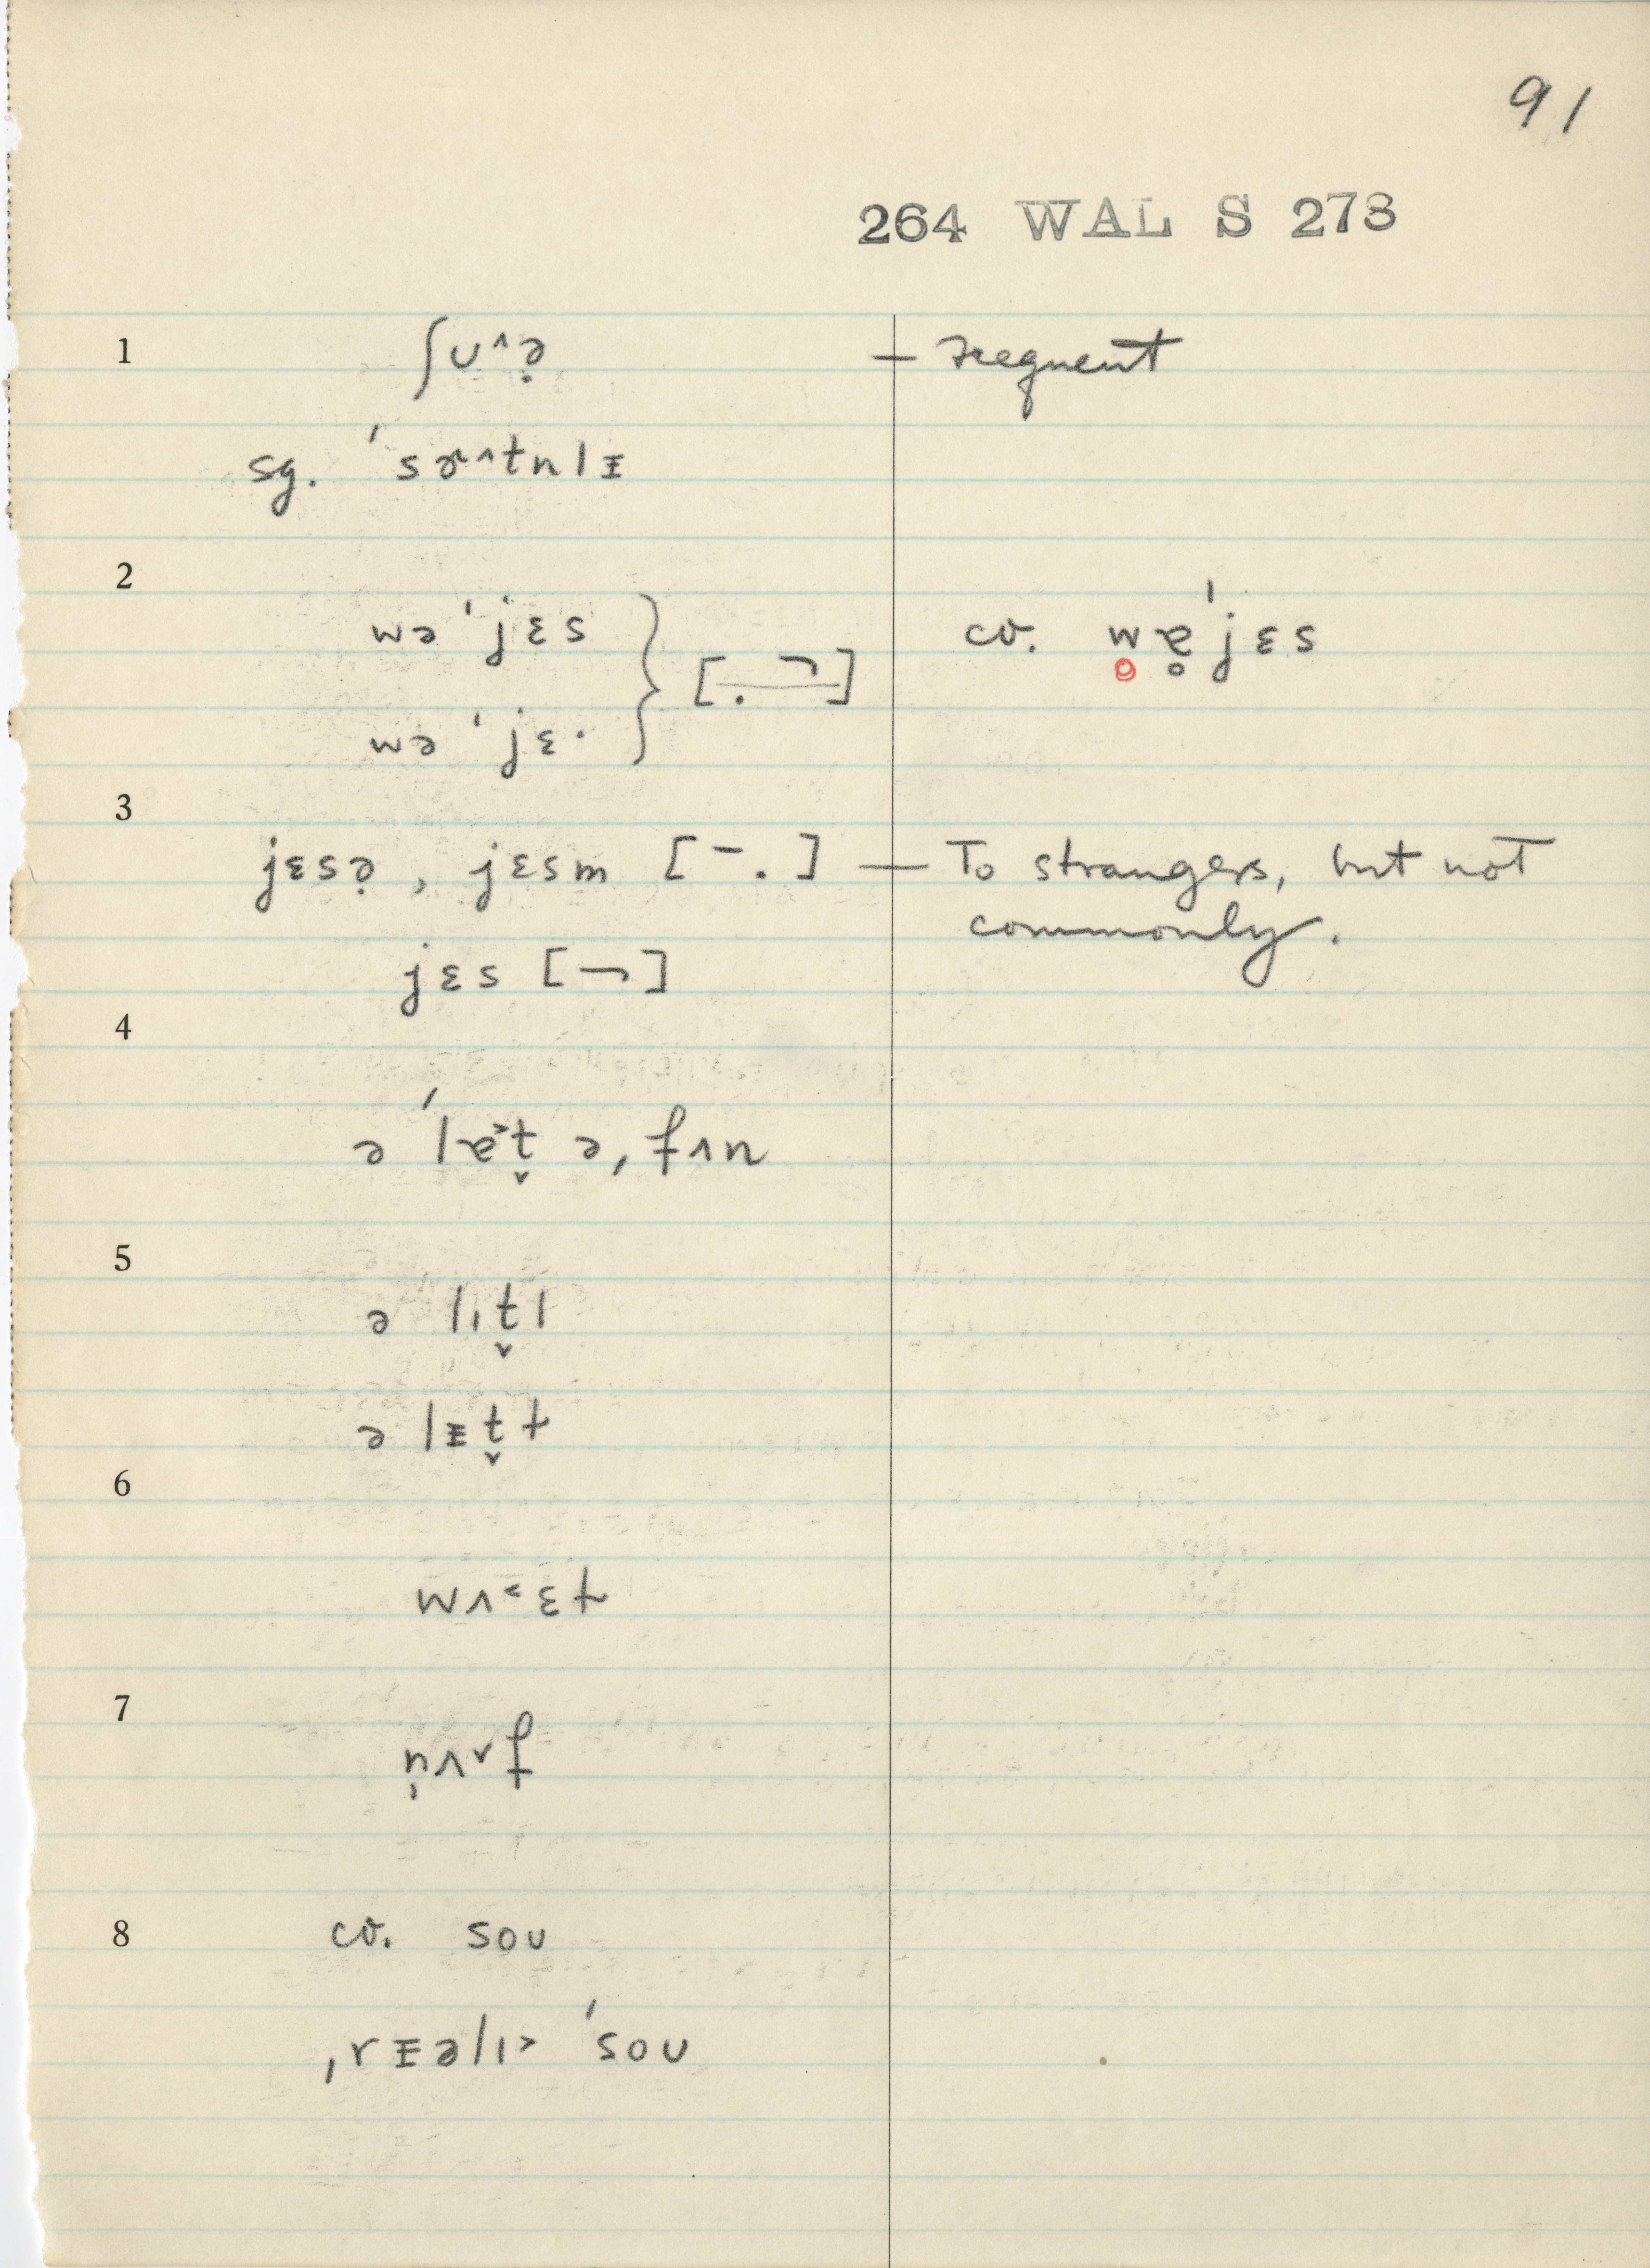 91
264 WAL S 273
1 ʃʊ^ə̣ — frequent
sg. ˈsɚ^tnlɪ
2
wə ˈjɛs
[. ¬] cv. we̥ˈjɛs
wə ˈjɛ·
3
jɛsə̣, jɛsm [¯ .] — To strangers, but not
commonly.
jɛs [¬]
4
ə ˈlɐt̬ ə, fʌn
5
ə lɪt̬l
ə lɪt̬t
6
wʌ˂ɛt
7
n̩ʌ˅f
8 cv. sou
ˌrɪəlɪ˃ ˈsoʊ